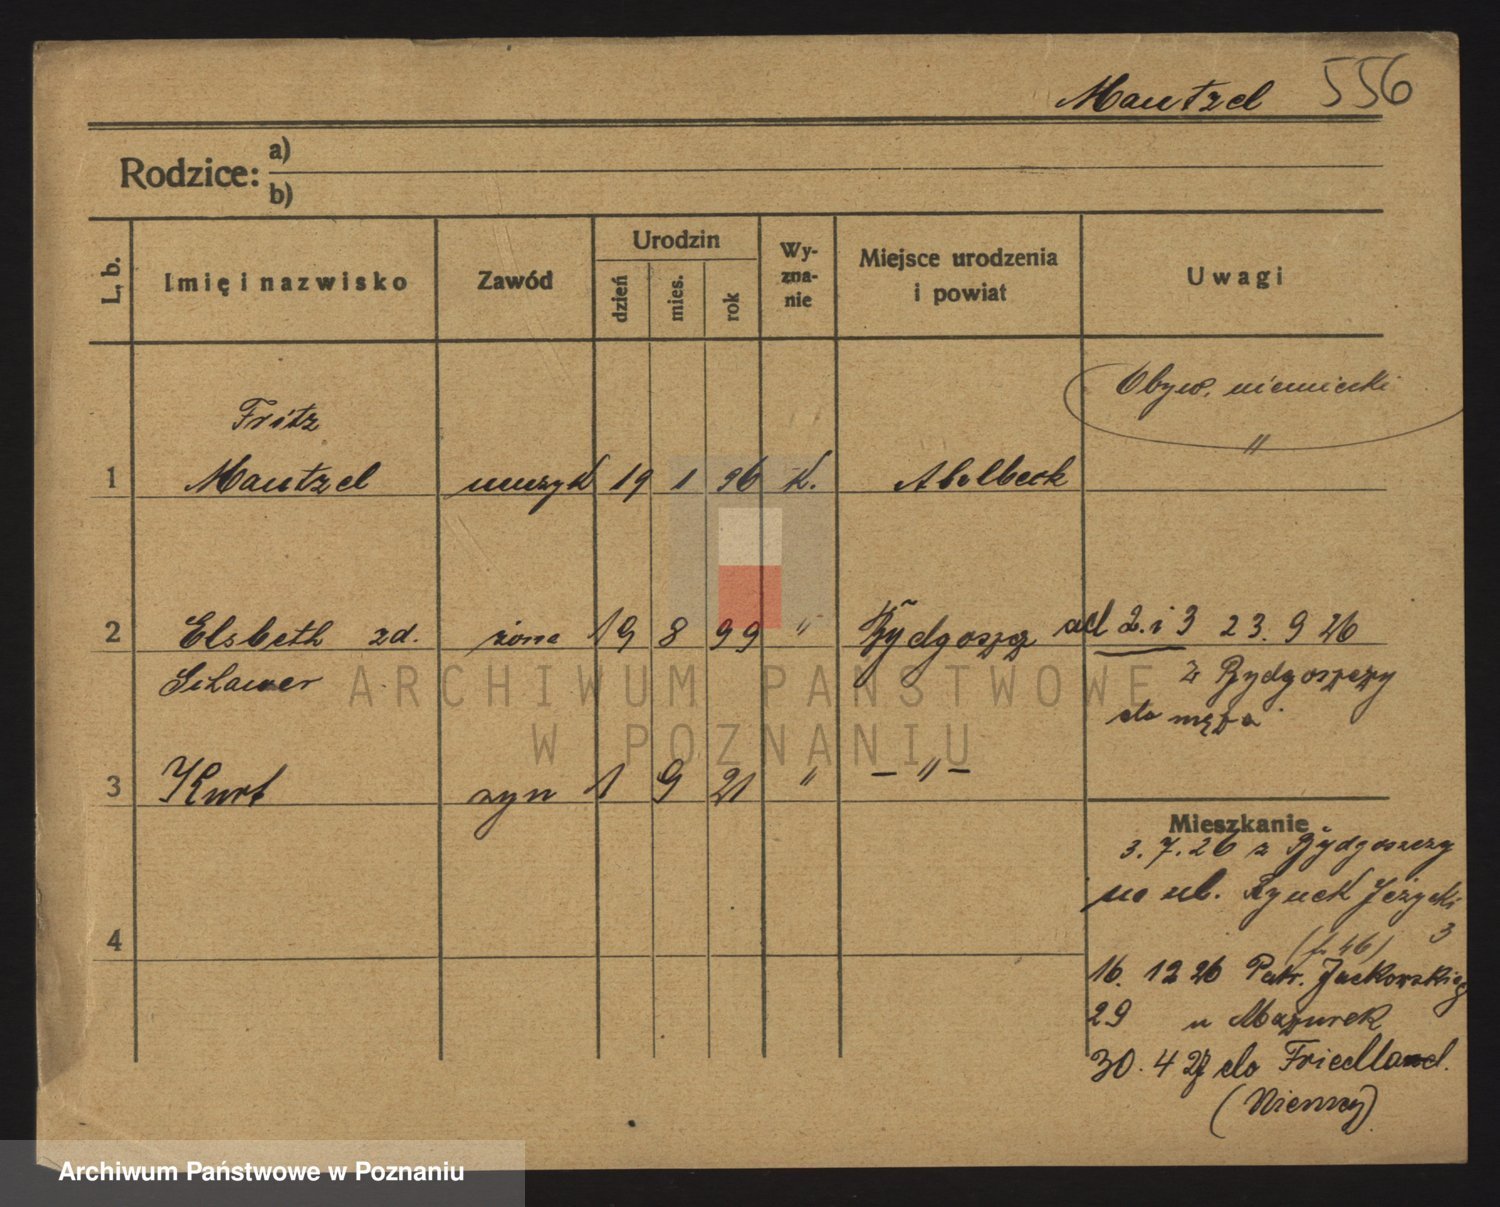 Mautzel 556
Rodzice: a)
b)
L. b. Imię i nazwisko Zawód Urodzin dzień mies. rok Wy-zna-nie Miejsce urodzenia i powiat Uwagi
Obyw. niemiecki
Fritz "
1 Mautzel muzyk 19 1 96 K. Abelbeck
2 Elsbeth zd. żona 19 8 99 " Bydgoszcz ad 2. i 3 23. 9 26
z Bydgoszczy
do męża
3 Kurt syn 1 9 21 " — " —
Mieszkanie
3. 7. 26 z Bydgoszczy
na ul. Rynek Jeżycki
3
4
16. 12 26 Patr. Jackowskiego
29 u Mazurek
30. 4 27 do Friedland.
(Niemcy)
ARCHIWUM PAŃSTWOWE
W POZNANIU
Archiwum Państwowe w Poznaniu